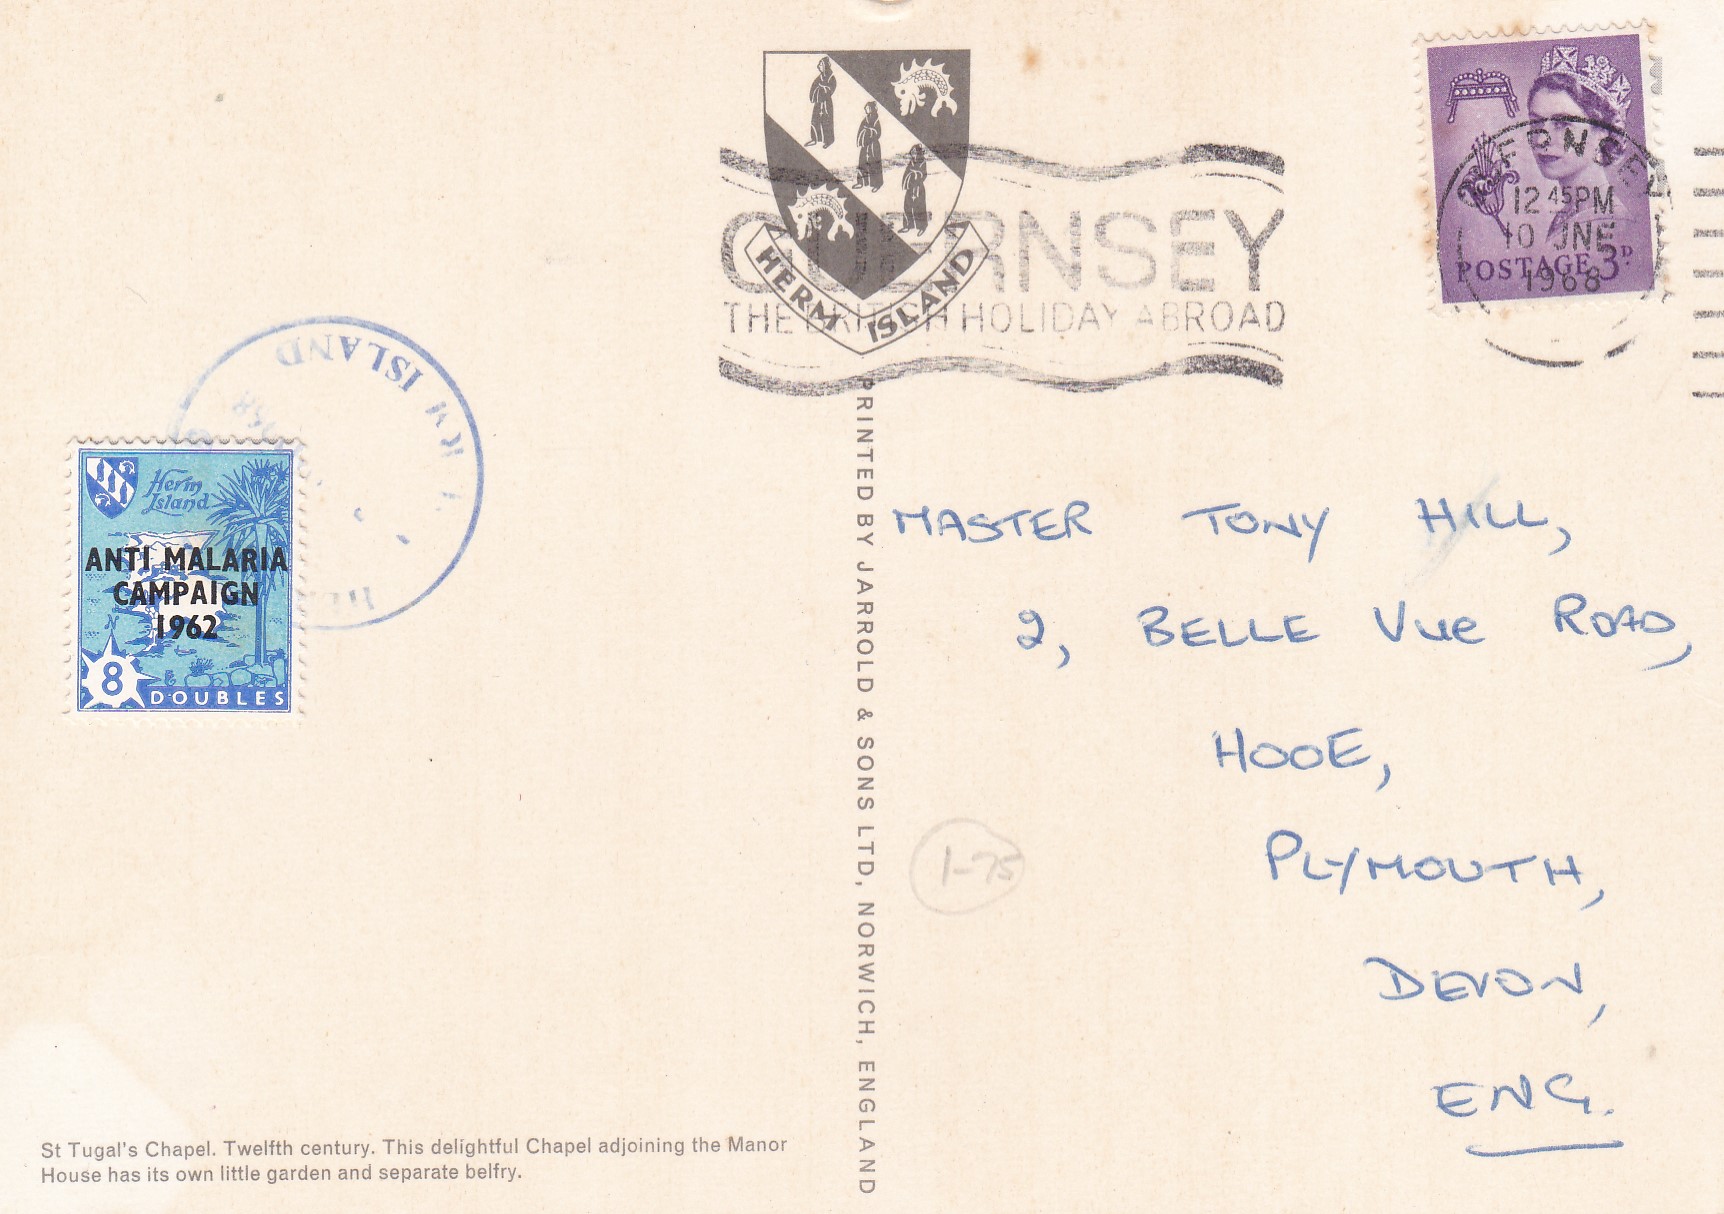 HERM ISLAND
GUERNSEY
THE BRITISH HOLIDAY ABROAD
GUERNSEY
12 45PM
10 JNE
1968
POSTAGE 3D.
RM ISLAND
Herm
Island
ANTI MALARIA
CAMPAIGN
1962
8 DOUBLES
PRINTED BY JARROLD & SONS LTD, NORWICH, ENGLAND
MASTER TONY HILL,
2, BELLE VUE ROAD,
HOOE,
PLYMOUTH,
DEVON,
ENG.
1-75
St Tugal's Chapel. Twelfth century. This delightful Chapel adjoining the Manor
House has its own little garden and separate belfry.